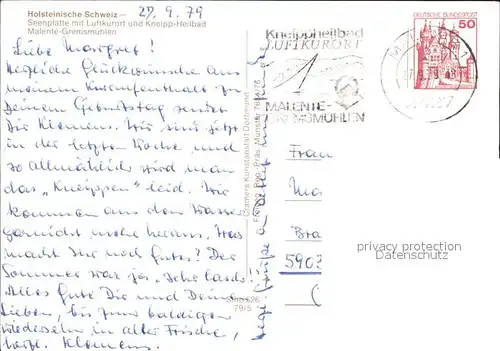 Holsteinische Schweiz –
Seenplatte mit Luftkurort und Kneipp-Heilbad
Malente-Gremsmühlen
27.9.79
Liebe Margret!
Herzliche Glückwünsche aus
meinem Kuraufenthalt zu
Deinem Geburtstag sendet
Dir Klemens. Wir sind jetzt
in der letzten Woche und
so allmählich wird man
das „Kneippen" leid. Wir
kommen aus dem Wasser
garnicht mehr heraus. Was
macht Ihr noch Gutes? Der
Sommer war ja „sehr lau"!
Alles Gute Dir und Deinen
Lieben, bis zum baldigen
Wiedersehn in alter Frische,
herzl. Klemens.
Cramers Kunstanstalt Dortmund
Freigeg. Reg.-Präs. Münster
SHo 626
79/5
Kneippheilbad
LUFTKURORT
MALENTE-
GREMSMÜHLEN
DEUTSCHE BUNDESPOST
50
2427
Frau
Ma
Bra
5903
privat verkaufte AK
Datenschutz